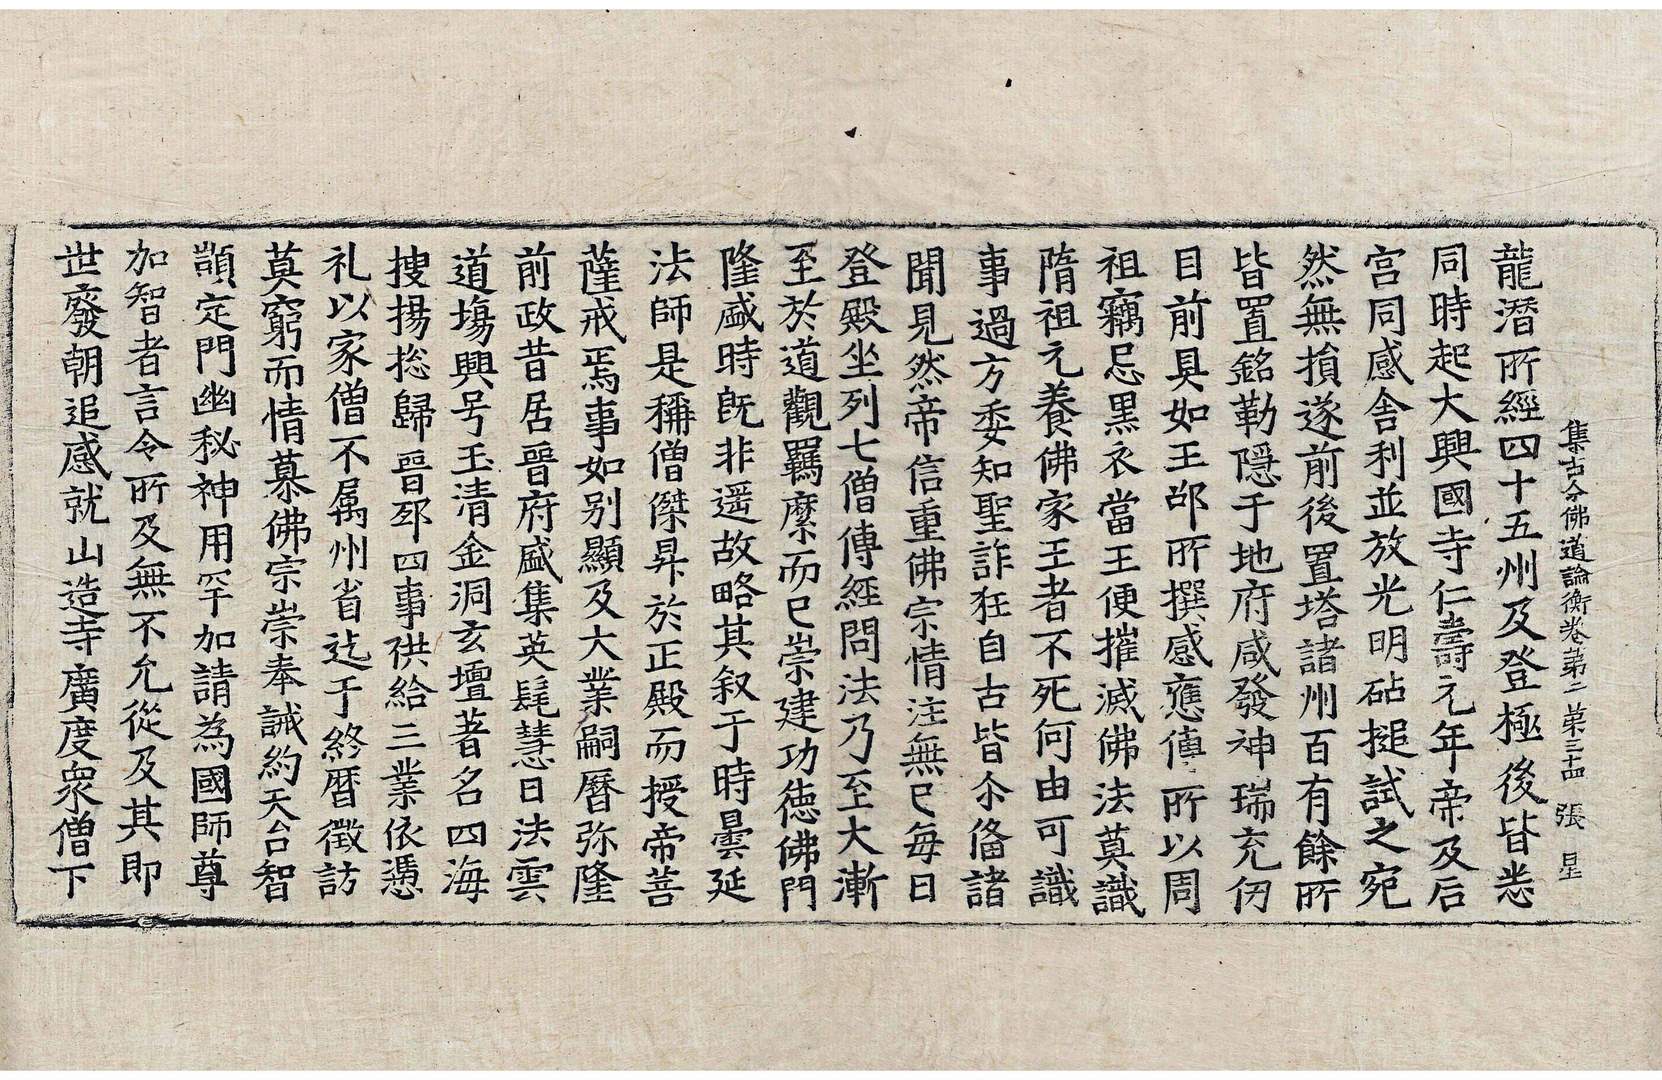 集古今佛道論衡卷第二 第三十四 張 星
龍潛所經四十五州及登極後皆悉
同時起大興國寺仁壽元年帝及后
宮同感舍利並放光明砧搥試之宛
然無損遂前後置塔諸州百有餘所
皆置銘勒隱于地府咸發神瑞充仞
目前具如王邵所撰感應傳所以周
祖竊忌黑衣當王便摧滅佛法莫識
隋祖元養佛家王者不死何由可識
事過方委知聖詐狂自古皆尒俻諸
聞見然帝信重佛宗情注無已每日
登殿坐列七僧傳經問法乃至大漸
至於道觀羈縻而已崇建功德佛門
隆盛時旣非遥故略其叙于時曇延
法師是稱僧傑昇於正殿而授帝菩
薩戒焉事如别顯及大業嗣曆弥隆
前政昔居晉府盛集英髦慧日法雲
道場興号玉清金洞玄壇著名四海
搜揚捴歸晉邸四事供給三業依憑
礼以家僧不属州省迄于終曆徵訪
莫窮而情慕佛宗崇奉誠約天台智
顗定門幽秘神用罕加請為國師尊
加智者言令所及無不允從及其即
世癈朝追感就山造寺廣度衆僧下